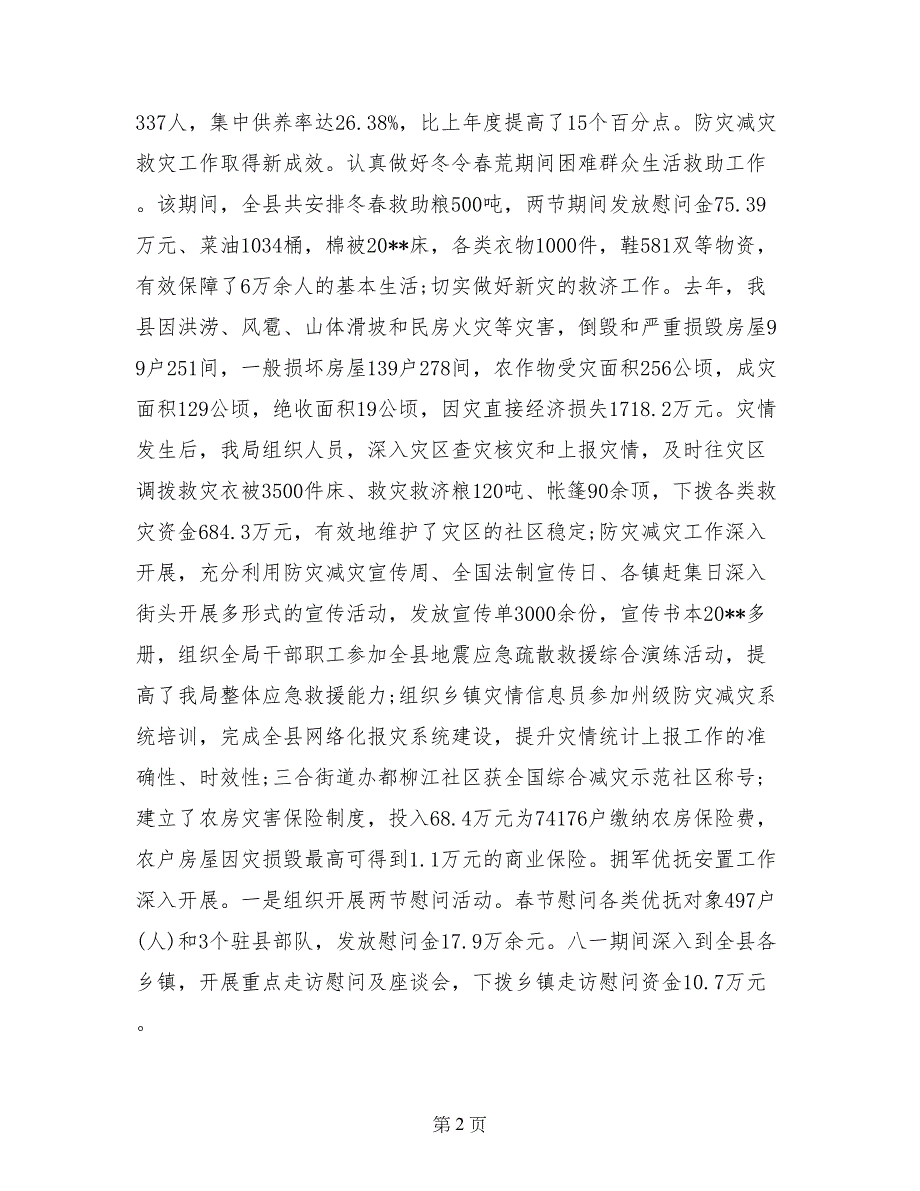 337人，集中供养率达26.38%，比上年度提高了15个百分点。防灾减灾
救灾工作取得新成效。认真做好冬令春荒期间困难群众生活救助工作
。该期间，全县共安排冬春救助粮500吨，两节期间发放慰问金75.39
万元、菜油1034桶，棉被20**床，各类衣物1000件，鞋581双等物资，
有效保障了6万余人的基本生活;切实做好新灾的救济工作。去年，我
县因洪涝、风雹、山体滑坡和民房火灾等灾害，倒毁和严重损毁房屋9
9户251间，一般损坏房屋139户278间，农作物受灾面积256公顷，成灾
面积129公顷，绝收面积19公顷，因灾直接经济损失1718.2万元。灾情
发生后，我局组织人员，深入灾区查灾核灾和上报灾情，及时往灾区
调拨救灾衣被3500件床、救灾救济粮120吨、帐篷90余顶，下拨各类救
灾资金684.3万元，有效地维护了灾区的社区稳定;防灾减灾工作深入
开展，充分利用防灾减灾宣传周、全国法制宣传日、各镇赶集日深入
街头开展多形式的宣传活动，发放宣传单3000余份，宣传书本20**多
册，组织全局干部职工参加全县地震应急疏散救援综合演练活动，提
高了我局整体应急救援能力;组织乡镇灾情信息员参加州级防灾减灾系
统培训，完成全县网络化报灾系统建设，提升灾情统计上报工作的准
确性、时效性;三合街道办都柳江社区获全国综合减灾示范社区称号;
建立了农房灾害保险制度，投入68.4万元为74176户缴纳农房保险费，
农户房屋因灾损毁最高可得到1.1万元的商业保险。拥军优抚安置工作
深入开展。一是组织开展两节慰问活动。春节慰问各类优抚对象497户
(人)和3个驻县部队，发放慰问金17.9万余元。八一期间深入到全县各
乡镇，开展重点走访慰问及座谈会，下拨乡镇走访慰问资金10.7万元
。
第 2 页